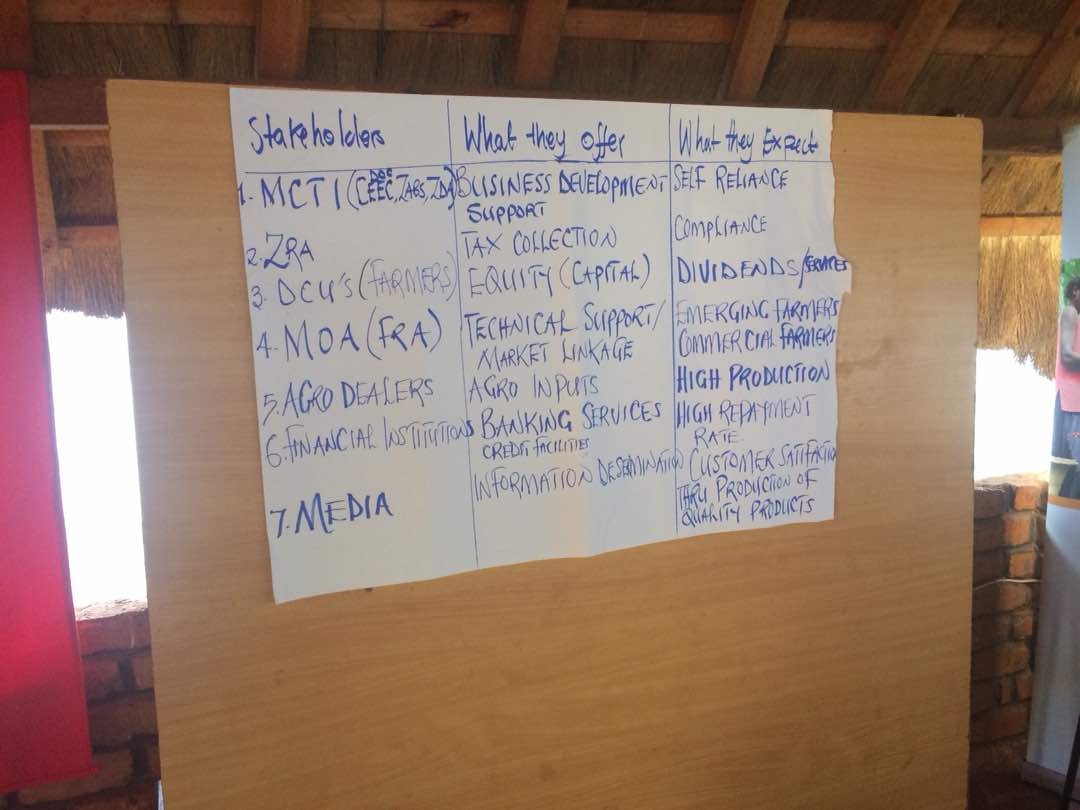 Stakeholders What they offer What they Expect
1. MCTI (CEEC, ZABS, ZDA) BUSINESS DEVELOPMENT SELF RELIANCE
SUPPORT
2. ZRA TAX COLLECTION COMPLIANCE
3. DCU'S (FARMERS) EQUITY (CAPITAL) DIVIDENDS/SERVICES
4. MOA (FRA) TECHNICAL SUPPORT/ EMERGING FARMERS
MARKET LINKAGE COMMERCIAL FARMERS
5. AGRO DEALERS AGRO INPUTS HIGH PRODUCTION
6. FINANCIAL INSTITUTIONS BANKING SERVICES HIGH REPAYMENT
CREDIT FACILITIES RATE.
7. MEDIA INFORMATION DESEMINATION CUSTOMER SATIFACTION
THRU PRODUCTION OF
QUALITY PRODUCTS